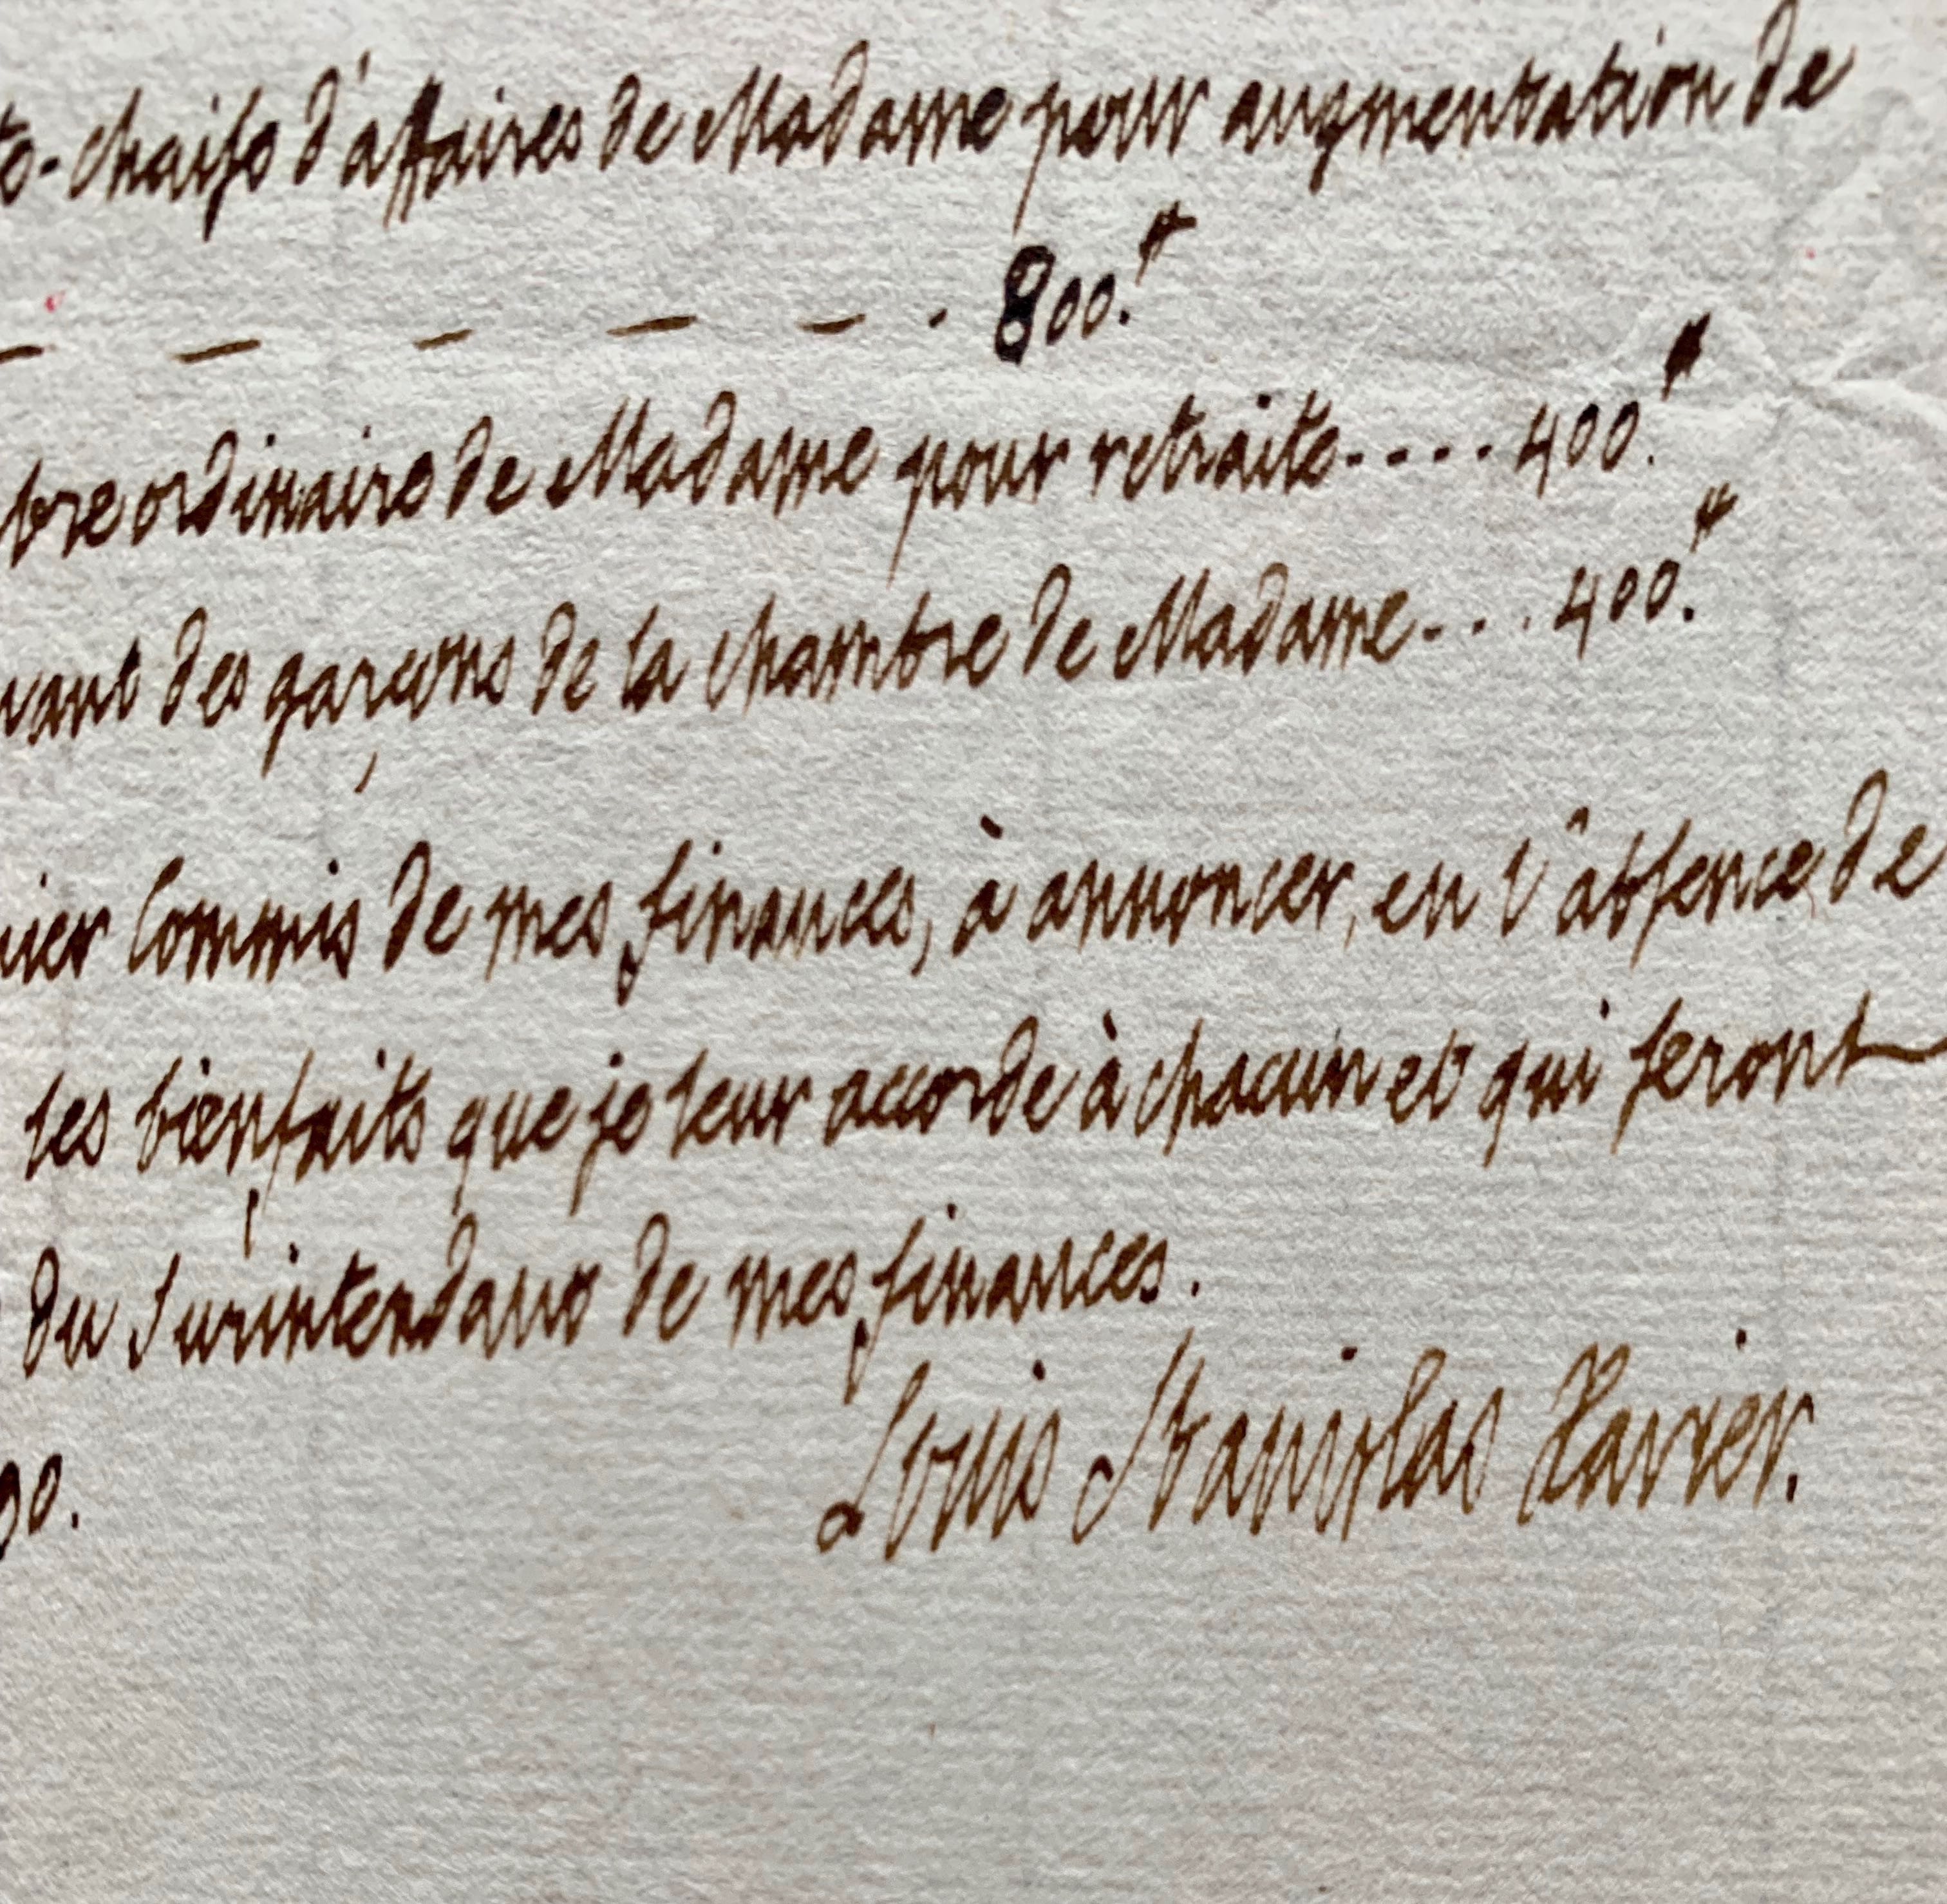 te-chaise d'affaires de Madame pour augmentation de
— — — — — . 800.ᵗᵗ
bre ordinaire de Madame pour retraite..... 400.ᵗᵗ
vant des garçons de la chambre de Madame... 400.ᵗᵗ
mier Commis de mes finances, à annoncer, en l'absence de
les bienfaits que je leur accorde à chacun et qui seront
du Surintendant de mes finances.
Louis Stanislas Xavier.
90.